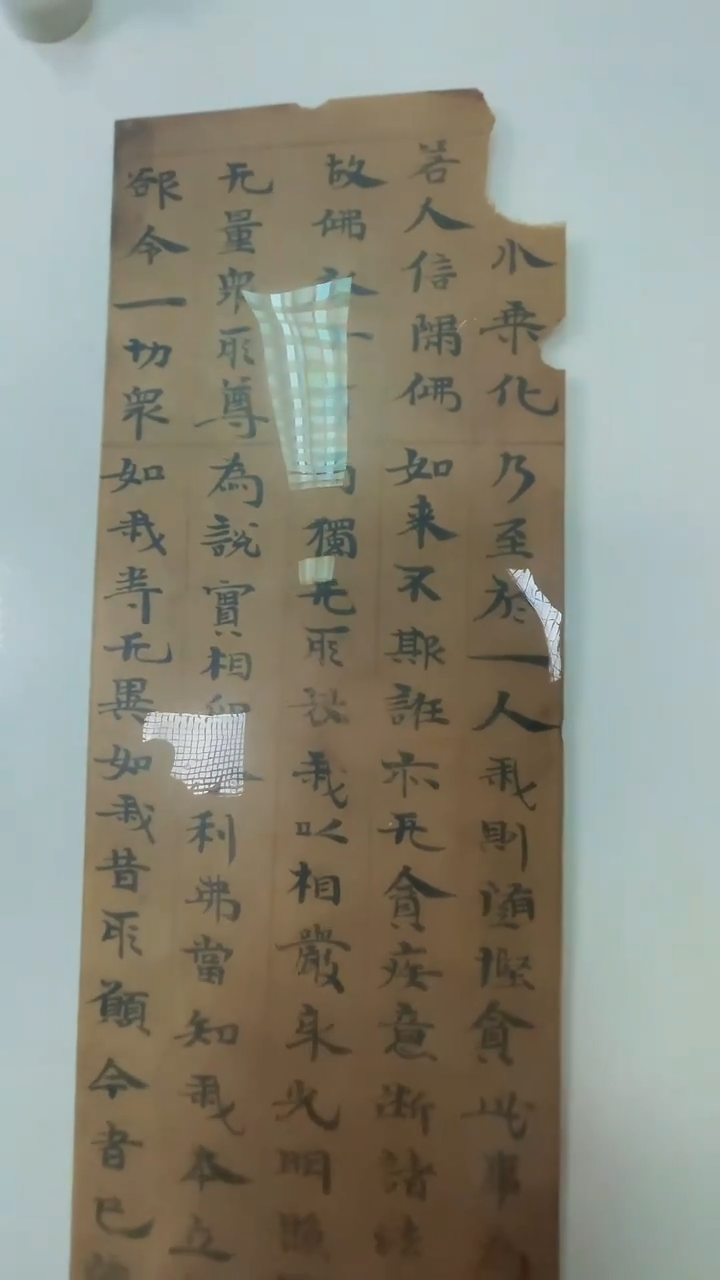 小乗化乃至於一人我則堕慳貪此事
若人信歸佛如来不欺誑亦无貪疾意断諸
故佛獨无所我以相嚴身光明照
无量衆所尊為說實相利弗當知我本立
欲令一切衆如我等无異如我昔所願今者已